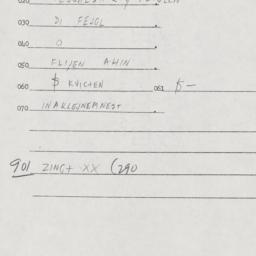 030 DI FEJGL
040 O
050 FLIJEN AHIN
060 $ KVICHEN 061 $—
070 IN A KLEJNEM NEST
901 ZING+ XX (290